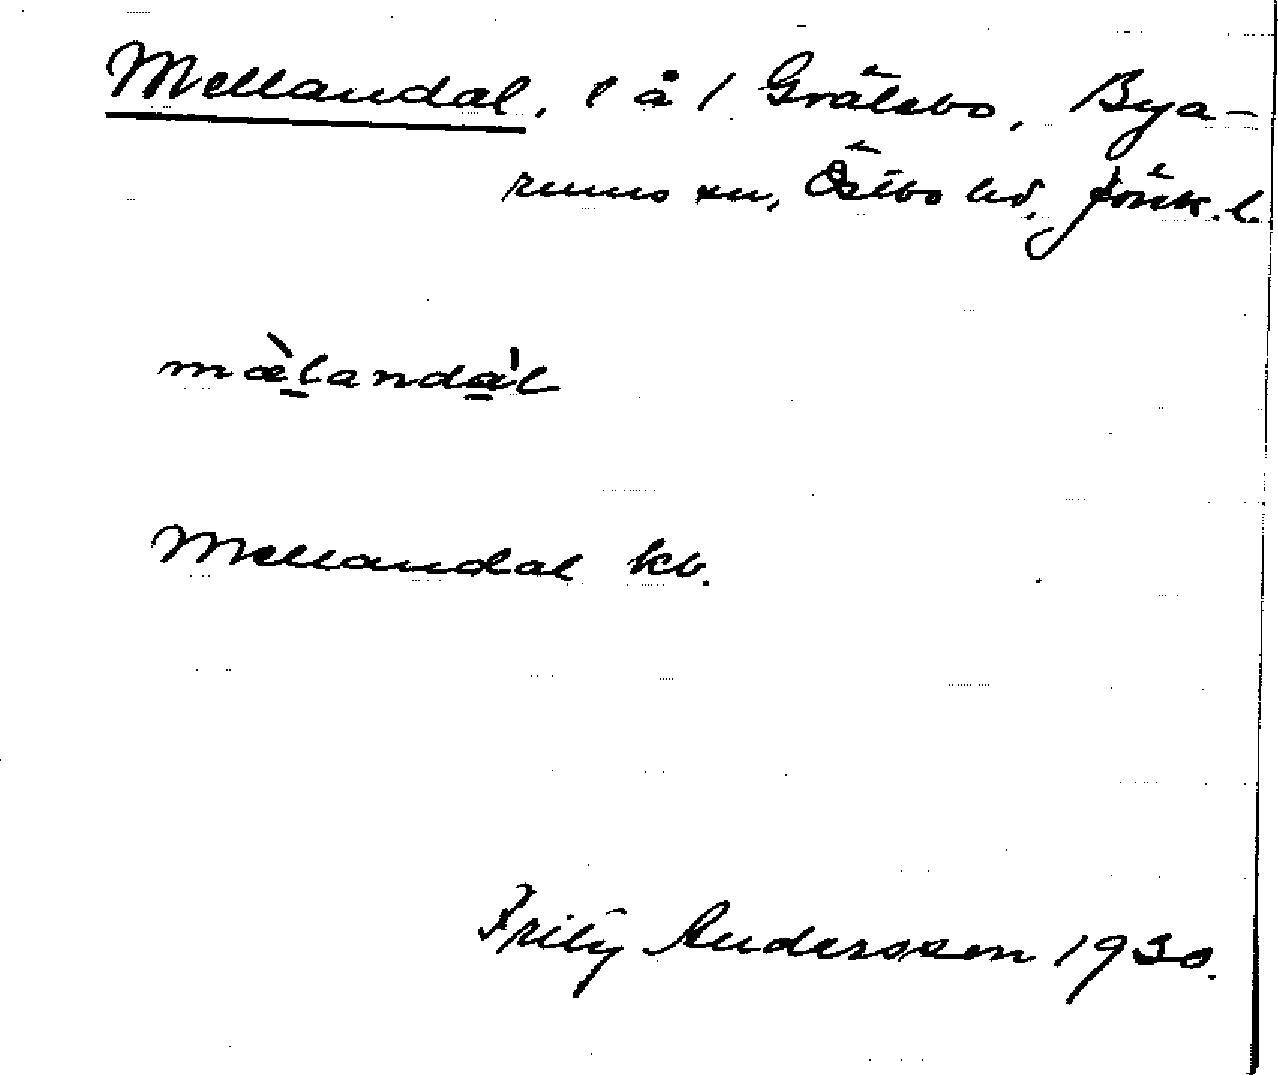 Mellandal, l å 1 Grälebo, Bya-
rums sn, Östbo hd, Jönk. l.
mæ̀landál
Mellandal kb.
Fritz Andersson 1930.